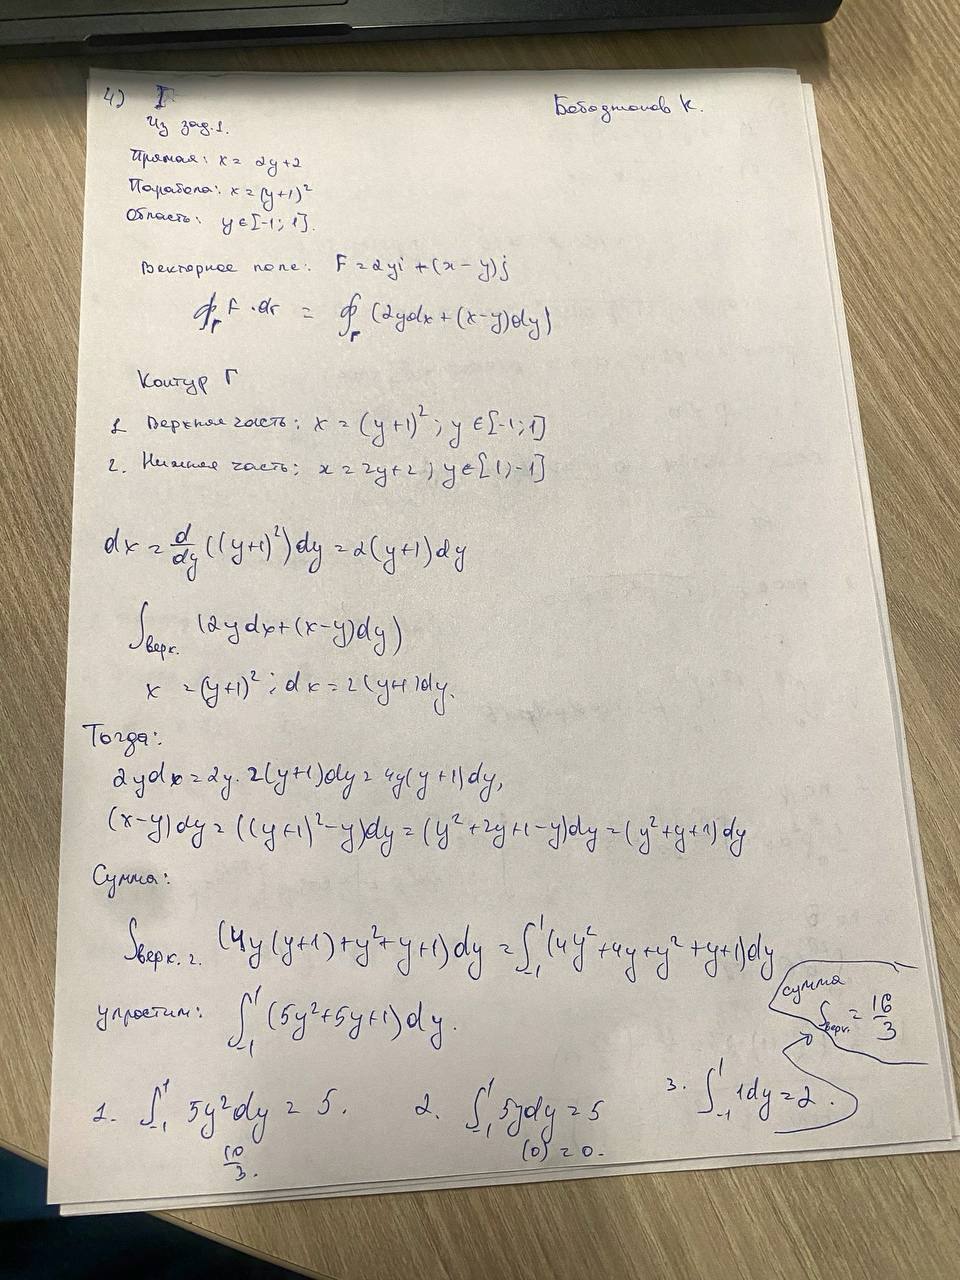 4) I
Из зад.1.
Бабаджанов К.
Прямая: x = 2y+2
Парабола: x = (y+1)²
Область: y ∈ [-1; 1].
Векторное поле: F = 2yi + (x-y)j
∮_Γ F·dr = ∮_Γ (2ydx + (x-y)dy)
Контур Γ
1. Верхняя часть: x = (y+1)²; y ∈ [-1; 1]
2. Нижняя часть; x = 2y+2; y ∈ [1; -1]
dx = d/dy ((y+1)²) dy = 2(y+1) dy
∫верх. (2y dx + (x-y) dy)
x = (y+1)²; dx = 2(y+1)dy.
Тогда:
2ydx = 2y · 2(y+1)dy = 4y(y+1)dy,
(x-y)dy = ((y+1)²-y)dy = (y²+2y+1-y)dy = (y²+y+1)dy
Сумма:
∫верх. г. (4y(y+1)+y²+y+1)dy = ∫₋₁¹ (4y²+4y+y²+y+1)dy
упростим: ∫₋₁¹ (5y²+5y+1)dy.
сумма
∫верх. = 16/3
1. ∫₋₁¹ 5y²dy = 5. 2. ∫₋₁¹ 5ydy = 5 3. ∫₋₁¹ 1dy = 2.
10/3. (0) = 0.